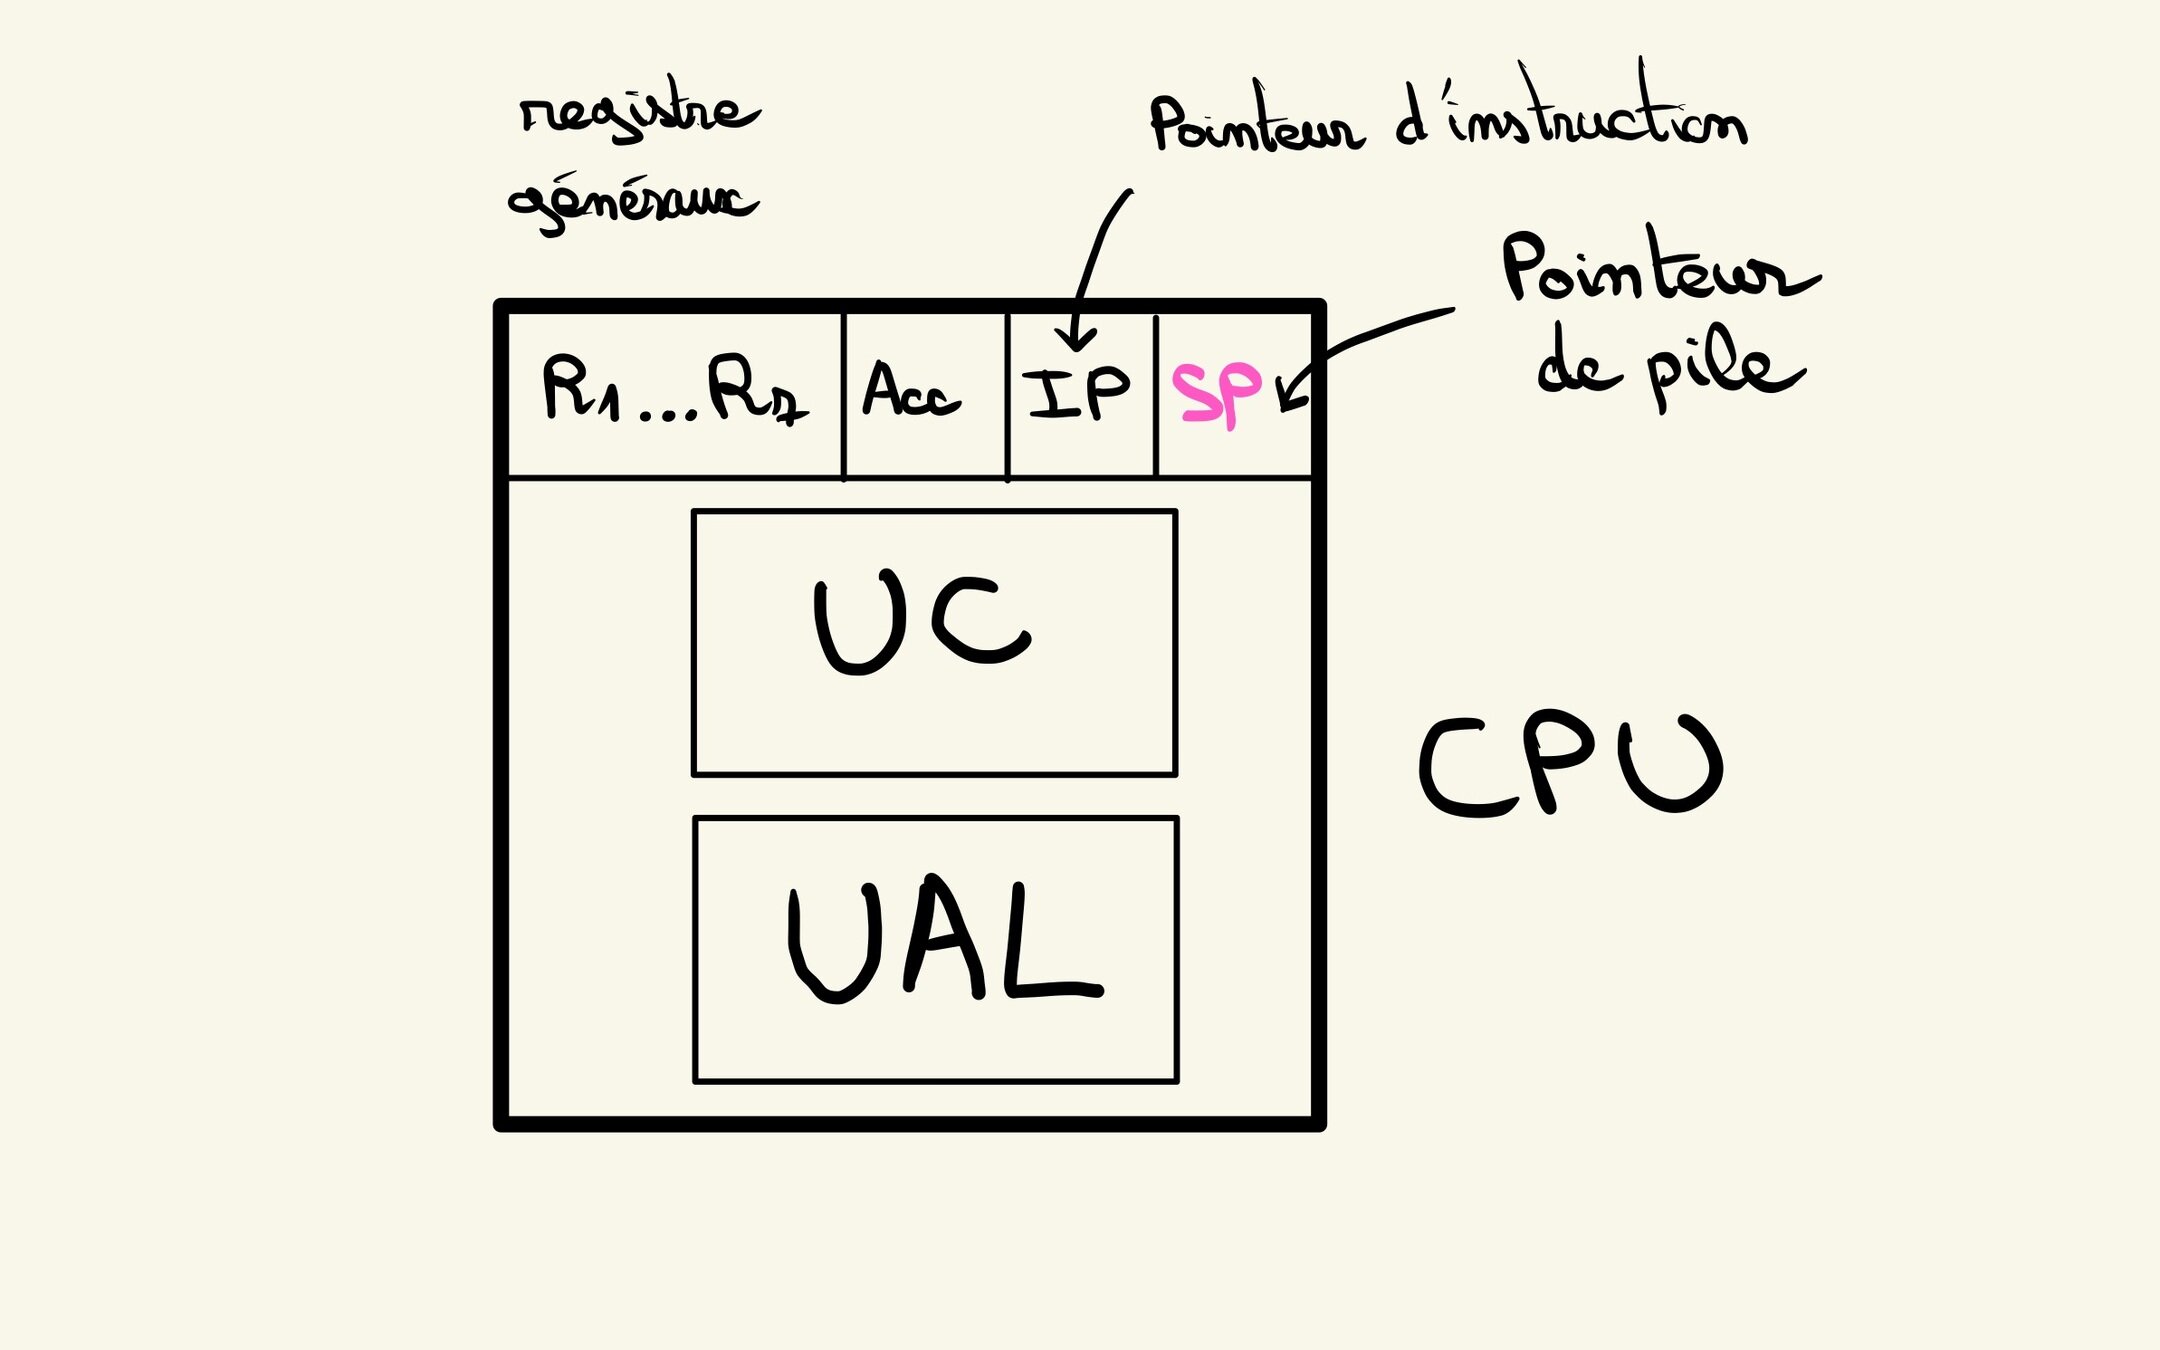 registre
généraux
Pointeur d'instruction
Pointeur
de pile
R1...R7 Acc IP SP
UC
CPU
UAL